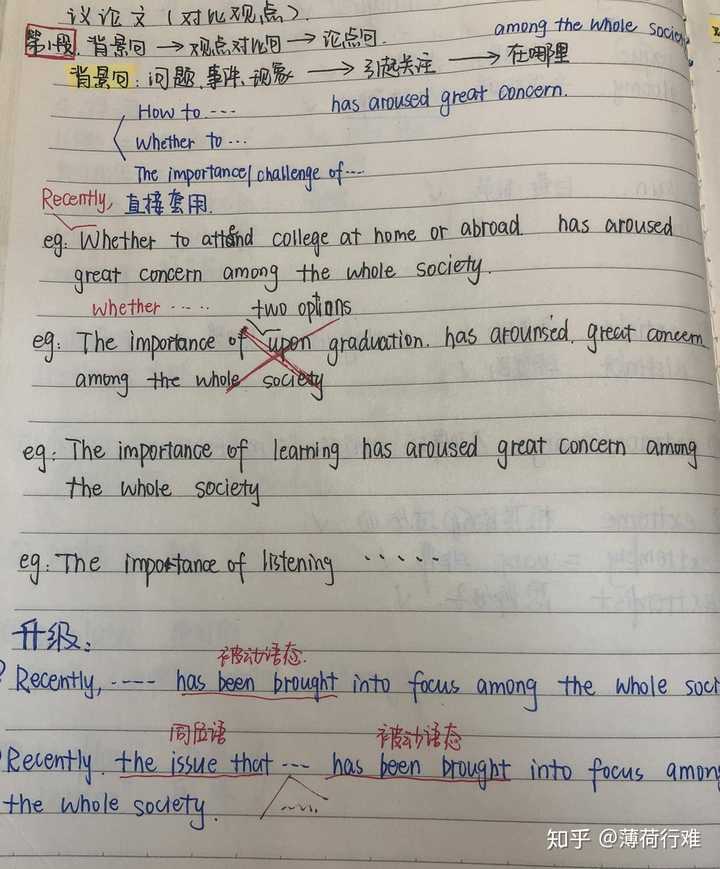 议论文(对比观点).
第1段. 背景句 → 观点对比句 → 论点句. among the whole society
背景句: 问题、事件、现象 → 引起关注 → 在哪里
How to ···· has aroused great concern.
Whether to ···
The importance/challenge of···
Recently, 直接套用.
eg: Whether to attend college at home or abroad has aroused
great concern among the whole society.
whether ····· two options
eg: The importance of upon graduation. has arounsed. great concern
among the whole society
eg: The importance of learning has aroused great concern among
the whole society
eg: The importance of listening ·····
升级:
被动语态.
Recently, ---- has been brought into focus among the whole soci
同位语 被动语态
Recently. the issue that --- has been brought into focus among
the whole society.
知乎 @薄荷行难